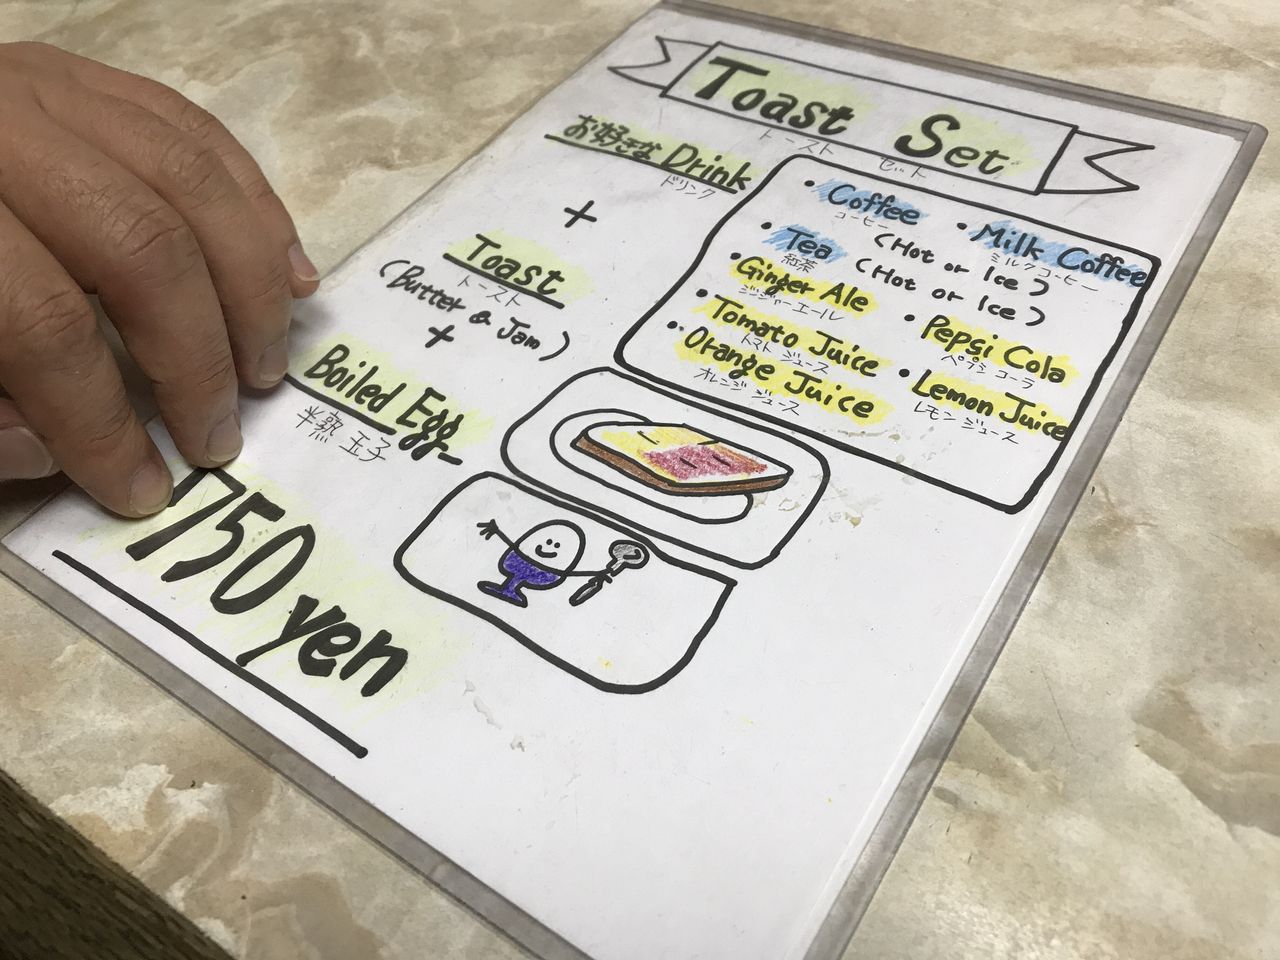 Toast Set
トースト セット
お好きな Drink
ドリンク
+
Toast
トースト
(Butter & Jam)
+
Boiled Egg
半熟 玉子
750 yen
• Coffee (Hot or Ice)
コーヒー
• Milk Coffee
ミルクコーヒー
• Tea (Hot or Ice)
紅茶
• Ginger Ale
ジンジャーエール
• Pepsi Cola
ペプシ コーラ
• Tomato Juice
トマト ジュース
• Lemon Juice
レモン ジュース
• Orange Juice
オレンジ ジュース